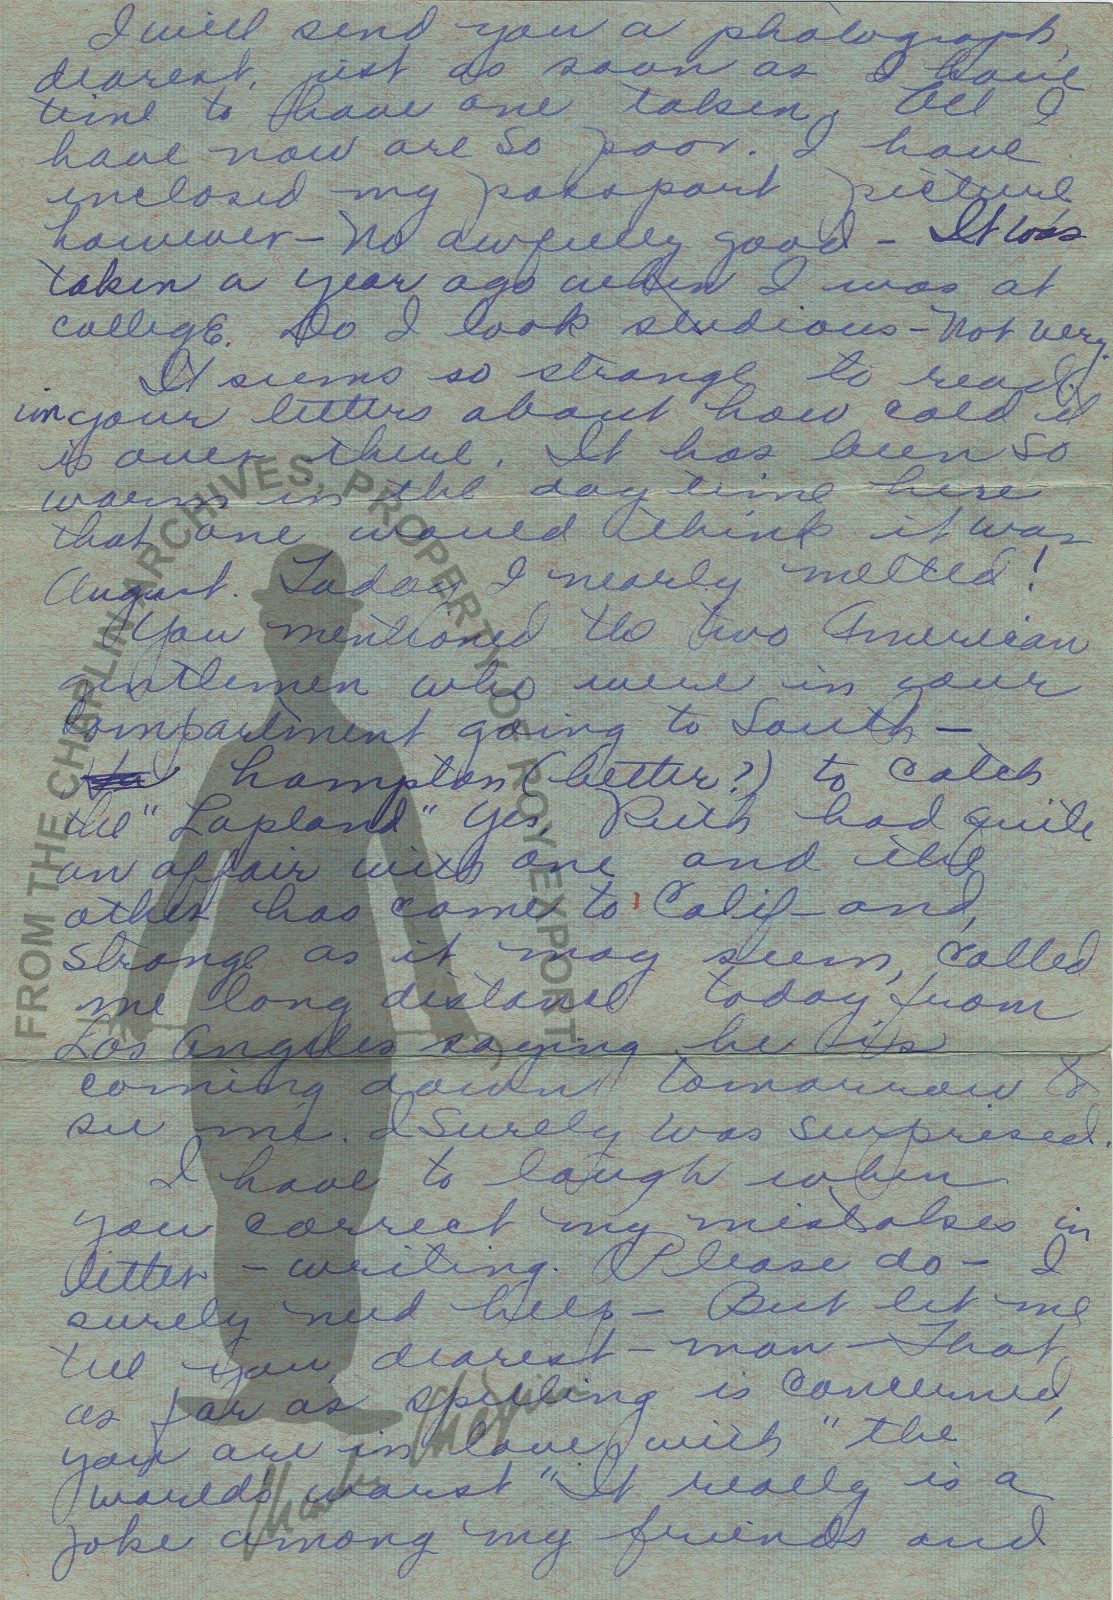 I will send you a photograph,
dearest, just as soon as I have
time to have one taken, All I
have now are so poor. I have
inclosed my passport picture
however — No awfully good — It was
taken a year ago when I was at
college. Do I look studious — Not very.
It seems so strange to read
in your letters about how cold it
is over there. It has been so
warm in the day time here
that one would think it was
August. Today I nearly melted!
You mentioned the two American
gentlemen who were in your
compartment going to South —
hampton (better?) to catch
the "Lapland" Yes, Ruth had quite
an affair with one and the
other has come to Calif — and,
strange as it may seem, called
me long distance today from
Los Angeles saying he is
coming down tomorrow to
see me. I surely was surprised.
I have to laugh when
you correct my mistakes in
letter — writing. Please do — I
surely need help — But let me
tell you, dearest — man — That,
as far as spelling is concerned,
you are in love with "the
worlds worst" It really is a
joke among my friends and
FROM THE CHAPLIN ARCHIVES, PROPERTY OF ROY EXPORT
Charlie Chaplin